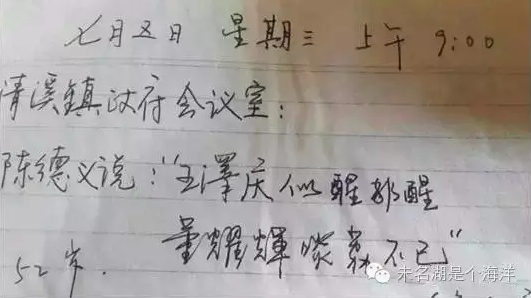 七月五日 星期三 上午 9:00
清溪鎮政府会议室:
陈德义说:"王澤庆似醒非醒
董耀輝咳嗽不已"
52岁.
未名湖是个海洋